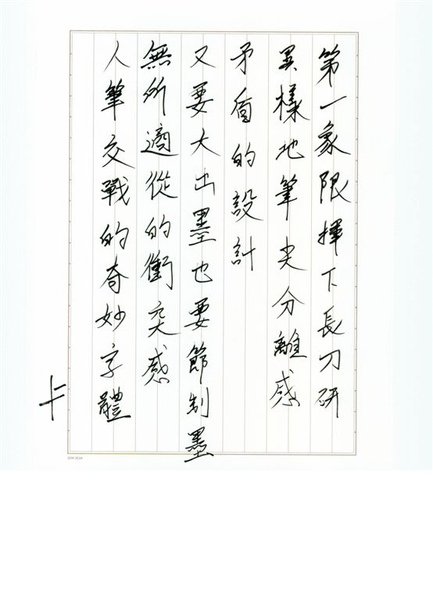 第一象限揮下長刀研
異樣地筆尖分離感
矛盾的設計
又要大出墨也要節制墨
無所適從的衝突感
人筆交戰的奇妙字體